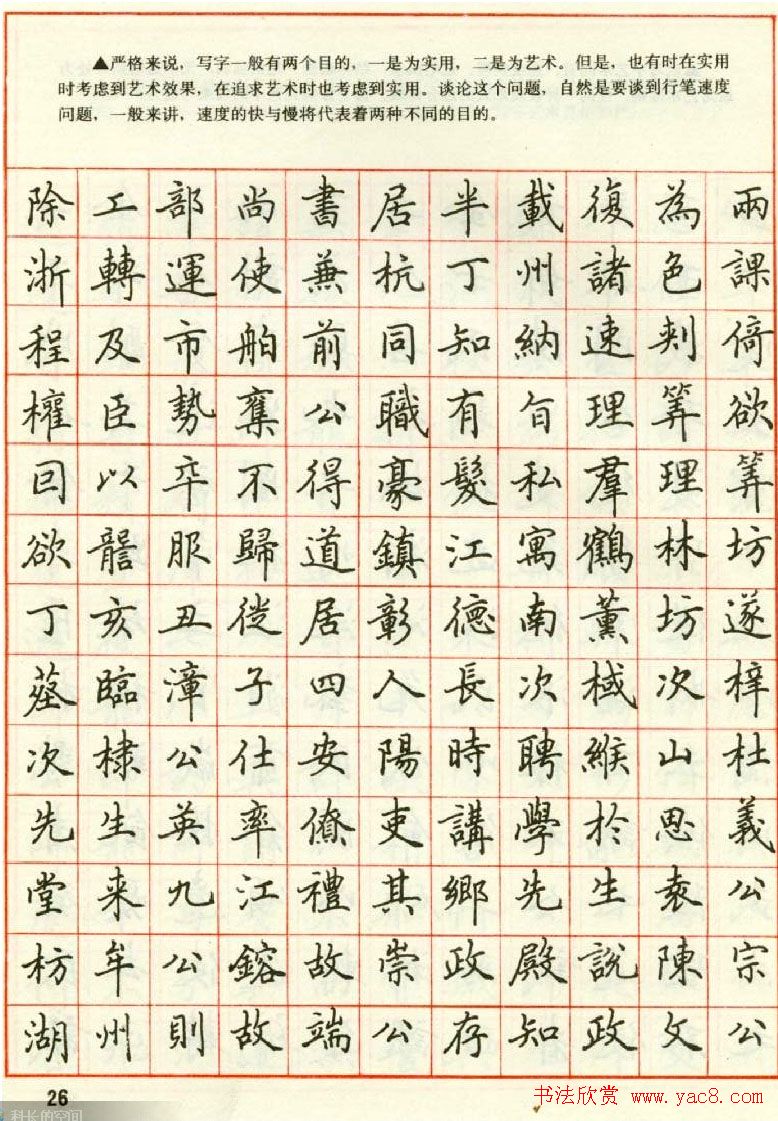 ▲严格来说，写字一般有两个目的，一是为实用，二是为艺术。但是，也有时在实用
时考虑到艺术效果，在追求艺术时也考虑到实用。谈论这个问题，自然是要谈到行笔速度
问题，一般来讲，速度的快与慢将代表着两种不同的目的。
除工部尚書居半載復為兩
浙轉運使兼杭丁州諸色課
程及市舶前同知納速剌倚
權臣勢奪公職有旨理筭欲
回以卒不得豪髮私羣理筭
欲服歸道鎮江寓鶴林坊
丁亥丑徙居彰德南薰坊遂
葬臨漳子四人長次棫次梓
次棣公仕安陽時聘緱山杜
先生英率僚吏講學於思義
堂来九江禮其鄉先生袁公
枋牟公鎔故崇政殿說陳宗
湖州則故端公存知政文公
26
科长的空间
书法欣赏 www.yac8.com